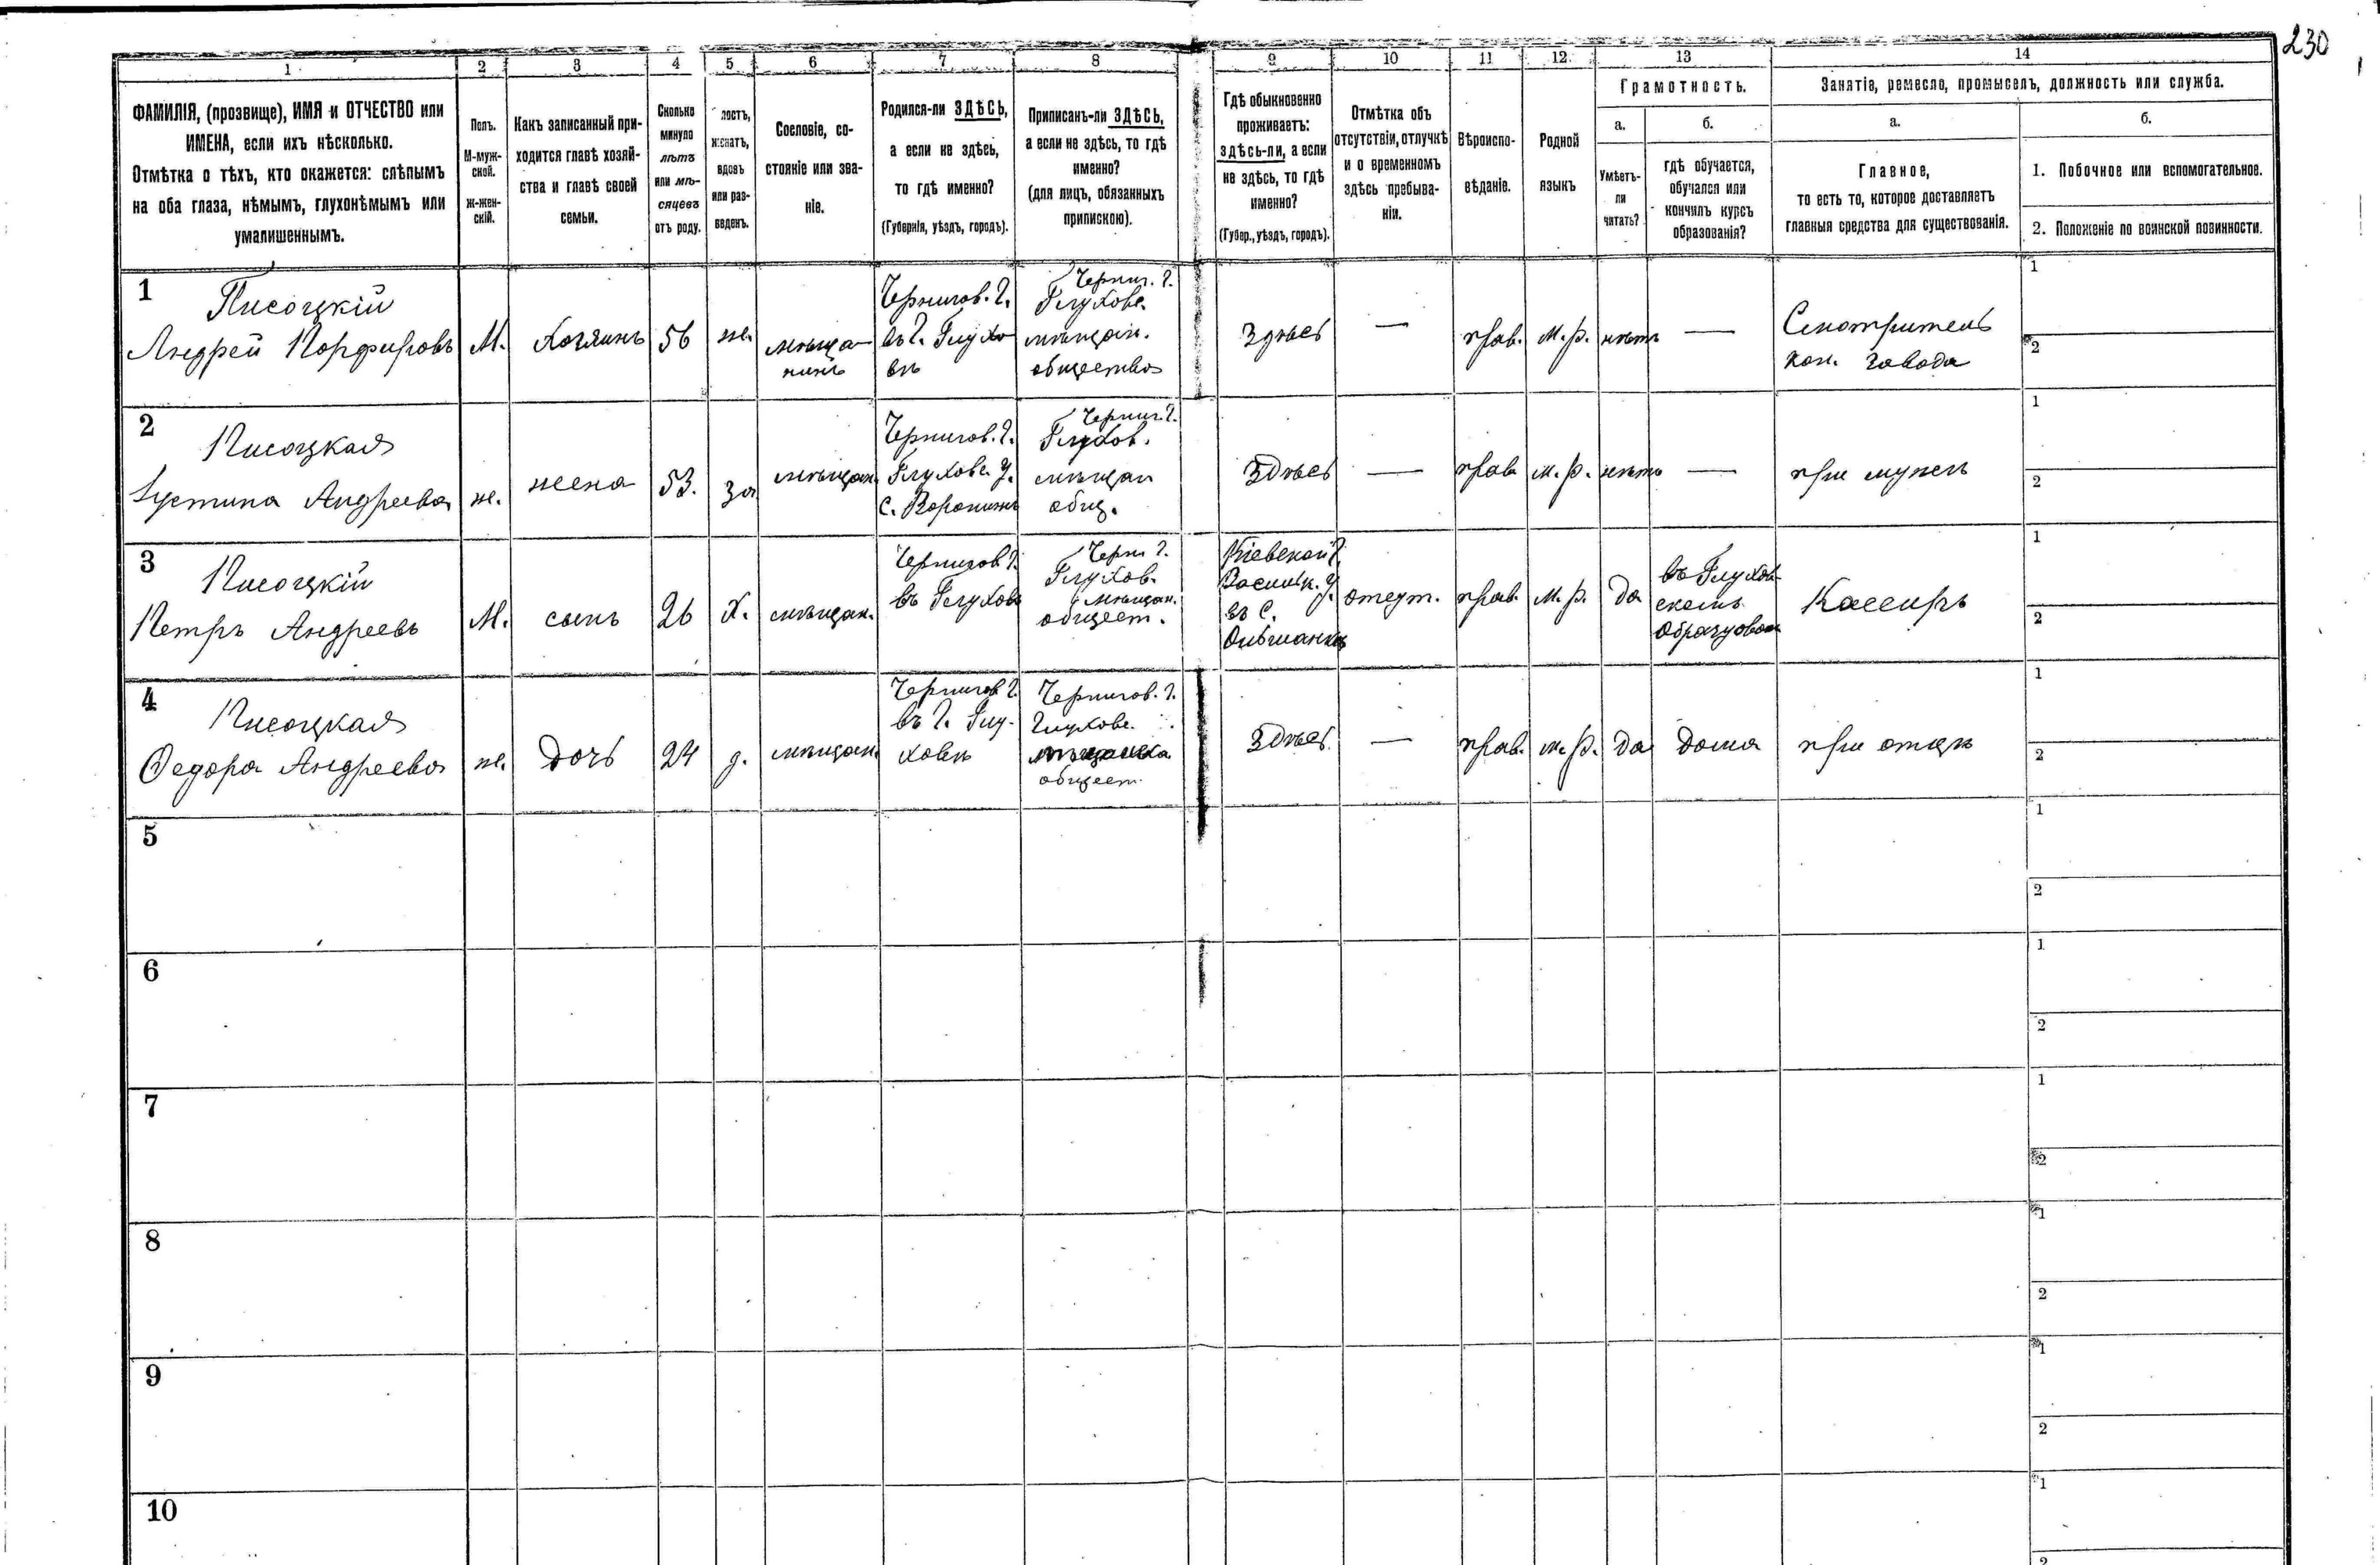 230
1 2 3 4 5 6 7 8 9 10 11 12 13 14
ФАМИЛІЯ, (прозвище), ИМЯ и ОТЧЕСТВО или
ИМЕНА, если ихъ нѣсколько.
Отмѣтка о тѣхъ, кто окажется: слѣпымъ
на оба глаза, нѣмымъ, глухонѣмымъ или
умалишеннымъ.
Полъ.
М-муж-
ской.
ж-жен-
скій.
Какъ записанный при-
ходится главѣ хозяй-
ства и главѣ своей
семьи.
Сколько
минуло
лѣтъ
или мѣ-
сяцевъ
отъ роду.
лостъ,
женатъ,
вдовъ
или раз-
веденъ.
Сословіе, со-
стояніе или зва-
ніе.
Родился-ли ЗДѢСЬ,
а если не здѣсь,
то гдѣ именно?
(Губернія, уѣздъ, городъ).
Приписанъ-ли ЗДѢСЬ,
а если не здѣсь, то гдѣ
именно?
(для лицъ, обязанныхъ
припискою).
Гдѣ обыкновенно
проживаетъ:
здѣсь-ли, а если
не здѣсь, то гдѣ
именно?
(Губер., уѣздъ, городъ).
Отмѣтка объ
отсутствіи, отлучкѣ
и о временномъ
здѣсь пребыва-
ніи.
Вѣроиспо-
вѣданіе.
Родной
языкъ
Грамотность.
а.
Умѣетъ-
ли
читать?
б.
гдѣ обучается,
обучался или
кончилъ курсъ
образованія?
Занятіе, ремесло, промыселъ, должность или служба.
а.
Главное,
то есть то, которое доставляетъ
главныя средства для существованія.
б.
1. Побочное или вспомогательное.
2. Положеніе по воинской повинности.
1
Писоцкій
Андрей Порфировъ
М.
Хозяинъ
56
же.
мѣща-
нинъ
Чернигов. г.
въ г. Глухо
вѣ
Черниг. г.
Глухов.
мѣщан.
общество
Здѣсь
—
прав.
м. р.
нѣтъ
—
Смотритель
кон. завода
1
2
2
Писоцкая
Устина Андреева
ж.
жена
53.
за
мѣщан.
Чернигов. г.
Глухов. у.
с. Воронижъ
Черниг. г.
Глухов.
мѣщан
общ.
Здѣсь
—
прав
м. р.
нѣтъ
—
при мужѣ
1
2
3
Писоцкій
Петръ Андреевъ
М.
сынъ
26
х.
мѣщан.
Чернигов г.
въ Глухов
Черн г.
Глухов.
мѣщан.
общест.
Кіевской г.
Васильк. у.
въ с.
Ольшанка
отсут.
прав.
м. р.
да
въ Глухов-
скомъ
Образцовом
Кассиръ
1
2
4
Писоцкая
Федора Андреева
ж.
дочь
24
д.
мѣщан.
Чернигов г.
въ г. Глу-
ховѣ
Чернигов. г.
Глухов.
общест.
Здѣсь.
—
прав.
м. р.
да
дома
при отцѣ
1
2
5
1
2
6
1
2
7
1
2
8
1
2
9
1
2
10
1
2